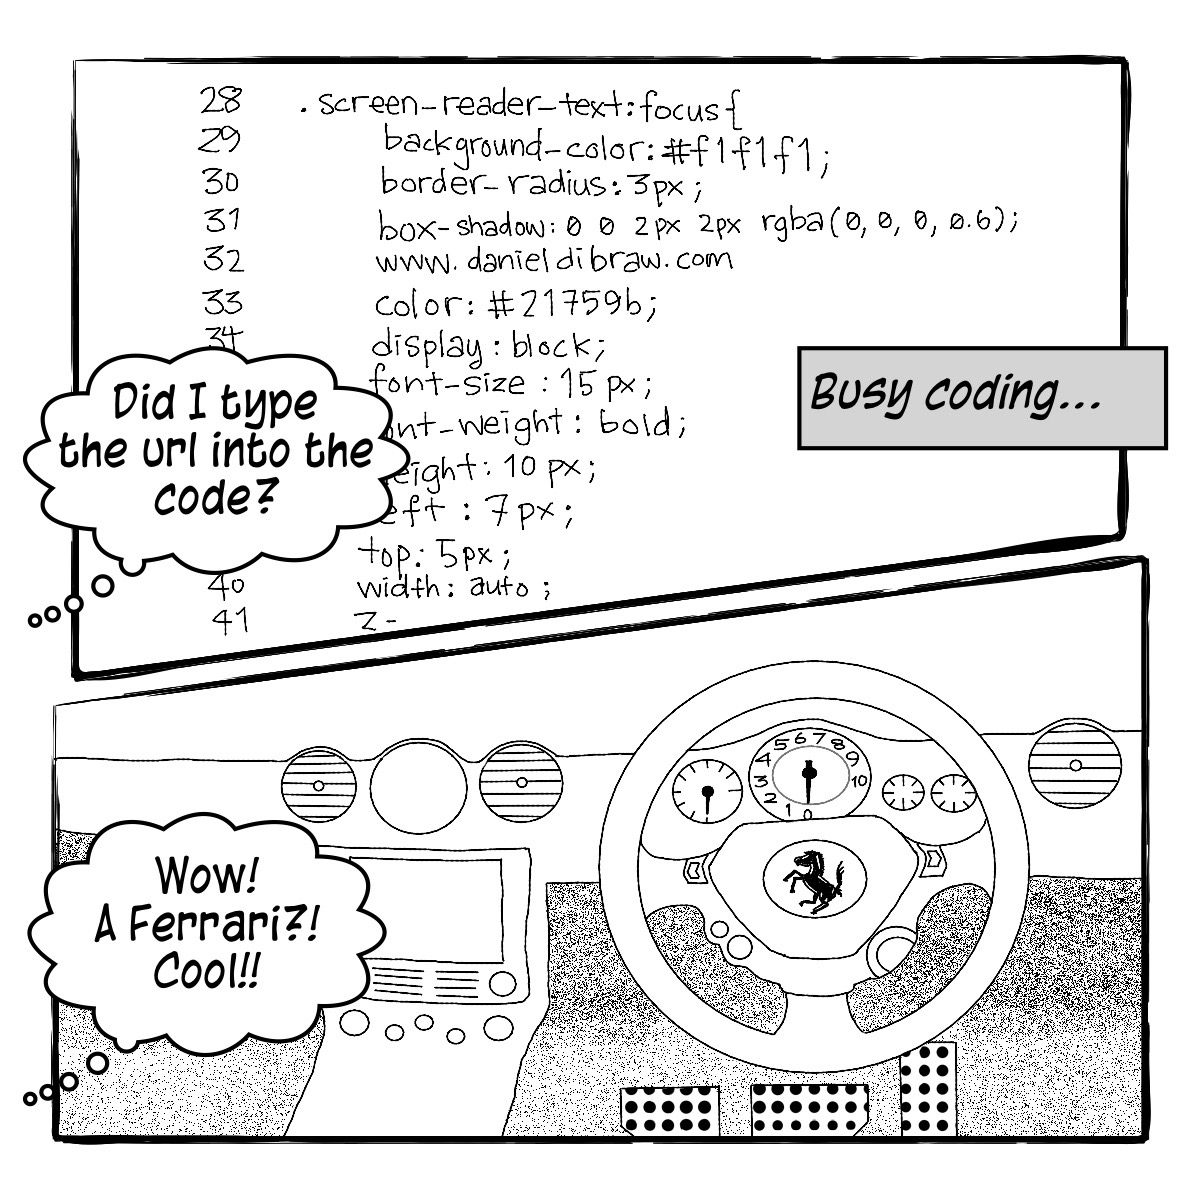 28 .screen-reader-text:focus{
29 background-color:#f1f1f1;
30 border-radius:3px;
31 box-shadow:0 0 2px 2px rgba(0,0,0,0.6);
32 www.danieldibraw.com
33 color:#21759b;
34 display:block;
font-size:15px;
ont-weight:bold;
eight:10px;
eft:7px;
top:5px;
40 width:auto;
41 z-
Busy coding...
Did I type
the url into the
code?
0 1 2 3 4 5 6 7 8 9 10
Wow!
A Ferrari?!
Cool!!